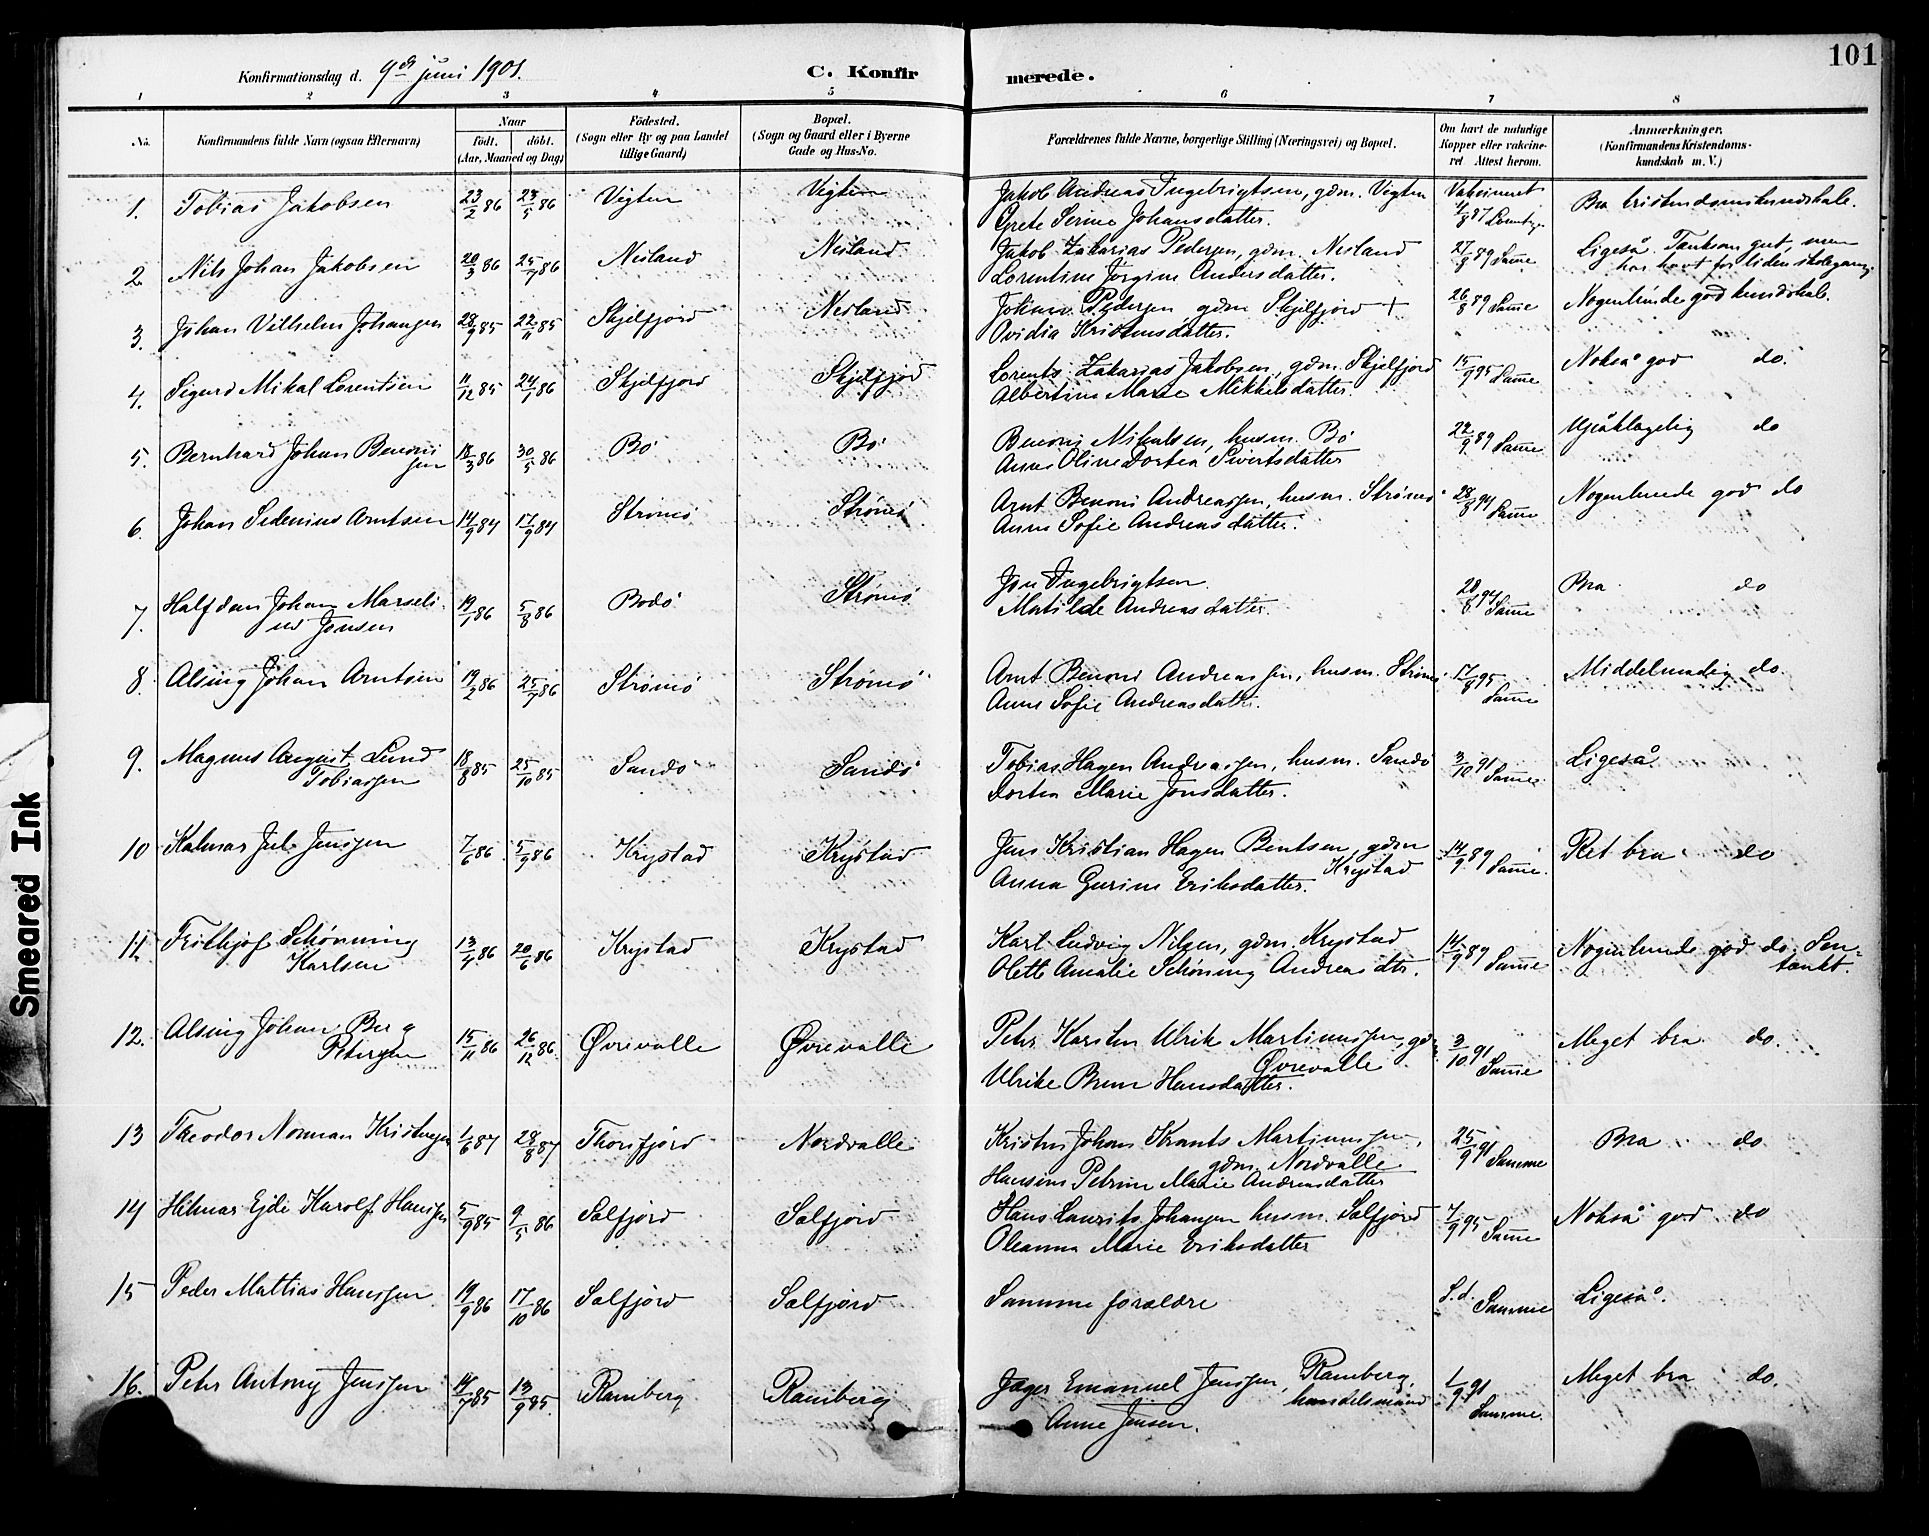 101
Konfirmationsdag d. 9de juni 1901.
C. Konfirmerede.
1 2 3 4 5 6 7 8
No.
Konfirmandens fulde Navn (ogsaa Efternavn)
Naar
født. døbt.
(Aar, Maaned og Dag)
Fødested.
(Sogn eller By og paa Landet
tillige Gaard)
Bopæl.
(Sogn og Gaard eller i Byerne
Gade og Hus-No.
Forældrenes fulde Navne, borgerlige Stilling (Næringsvei) og Bopæl.
Om havt de naturlige
Kopper eller vakcine-
ret Attest herom.
Anmærkninger.
(Konfirmandens Kristendoms-
kundskab m. V.)
1. Tobias Jakobsen 23/2 86 23/5 86 Vigten Vigten Jakob Andreas Ingebrigtsen, gdm. Vigten Vakcineret Bra kristendomskundskab.
Grete Serine Johansdatter. 4/8 87
2. Nils Johan Jakobsen 20/3 86 25/7 86 Nesland Nesland Jakob Zakarias Pedersen, gdm. Nesland 27/8 89 Samme Ligeså. Tænksom gut, men
Lorentine Jørgine Andersdatter. har havt for liden skolegang.
3. Johan Vilhelm Johansen 28/9 85 22/11 85 Skjelfjord Nesland Johan Pedersen gdm Skjelfjord + 26/8 89 Samme Nogenlunde god kundskab.
Ovidia Kristensdatter.
4. Sigurd Mikal Lorentsen 11/12 85 24/1 86 Skjelfjord Skjelfjord Lorents Zakarias Jakobsen, gdm. Skjelfjord 15/9 95 Samme Nokså god do.
Albertine Marie Mikkelsdatter.
5. Bernhard Johan Benoni 18/3 86 30/5 86 Bø Bø Benoni Mikalsen, husm. Bø 22/9 89 Samme Upåklagelig do
sen Anne Oline Dortea Sivertsdatter
6. Johan Sedenius Arntsen 14/9 84 17/9 84 Strømø Strømø Arnt Benoni Andreassen, husm. Strømø 28/8 94 Samme Nogenlunde god do
Anne Sofie Andreasdatter.
7. Halfdan Johan Marseli- 19/1 86 5/8 86 Bodø Strømø Jon Ingebrigtsen 28/8 94 Samme Bra do
us Jonsen Matilde Andreasdatter.
8. Alsing Johan Arntsen 19/2 86 25/7 86 Strømø Strømø Arnt Benoni Andreassen, husm. Strømø 17/8 95 Samme Middelmadig do.
Anne Sofie Andreasdatter.
9. Magnus August Lund 18/8 85 25/10 85 Sandø Sandø Tobias Hagen Andreassen, husm. Sandø 3/10 91 Samme Ligeså.
Tobiassen Dortea Marie Jonsdatter.
10 Kalmar Jul. Jenssen 7/6 86 5/9 86 Krystad Krystad Jens Kristian Hagen Bentsen, gdm 14/9 89 Samme. Ret bra do
Krystad
Anna Gurine Eriksdatter.
11. Fritkjof Schønning 13/4 86 20/6 86 Krystad Krystad Karl Ludvig Nilsen, gdm. Krystad 14/9 89 Samme Nogenlunde god do. Sen-
Karlsen Olette Amalie Schöning Andreasdtr. tænkt.
12. Alsing Johan Berg 15/11 86 26/12 86 Øvrevalle Øvrevalle Peter Karsten Ulrik Martinussen, gdm 3/10 91 Samme Meget bra do.
Petersen Øvrevalle
Ulrike Brun Hansdatter.
13 Theodor Norman Kristensen 1/6 87 28/8 87 Thorsfjord Nordvalle Kristen Johan Krants Martinussen, 25/9 91 Samme Bra do
gdm. Nordvalle
Hansine Petrine Marie Andreasdatter
14 Hilmar Ejde Karolf Hanssen 5/9 85 9/5 86 Solfjord Solfjord Hans Laurits Johansen husm. Solfjord 7/9 95 Samme Nokså god do
Oleanna Marie Eriksdatter
15 Peder Mattias Hanssen 19/9 86 17/10 86 Solfjord Solfjord Samme forældre S.d. Samme Ligeså.
16. Peter Antony Jenssen 14/7 85 13/9 85 Ramberg Ramberg Jager Emanuel Jenssen, Ramberg, 1/9 91 Samme. Meget bra do.
handelsmand
Anne Jensen.
Smeared Ink